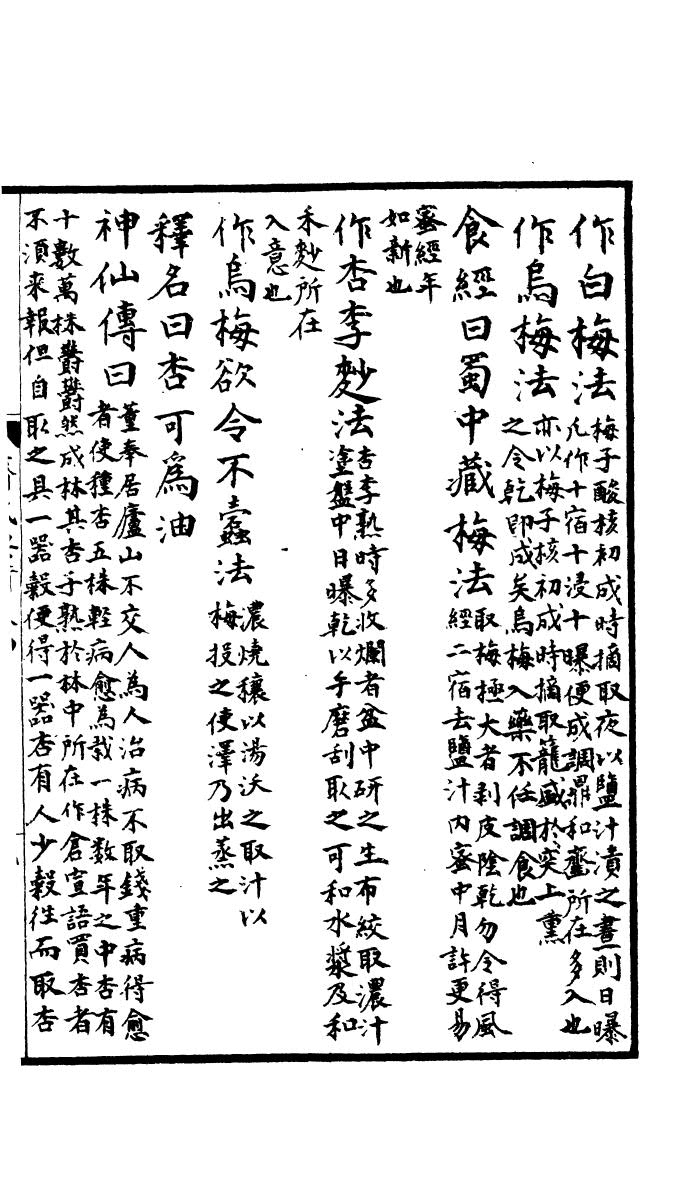 作白梅法梅子酸核初成時摘取夜以鹽汁漬之晝則日曝
凡作十宿十浸十曝便成調鼎和虀所在多入也
作烏梅法亦以梅子核初成時摘取籠盛於突上熏
之令乾即成矣烏梅入藥不任調食也
食經曰蜀中藏梅法取梅極大者剥皮陰乾勿令得風
經二宿去鹽汁内蜜中月許更易
蜜經年
如新也
作杏李麨法杏李熟時多收爛者盆中研之生布絞取濃汁
塗盤中日曝乾以手磨刮取之可和水漿及和
米麨所在
入意也
作烏梅欲令不蠹法濃燒穰以湯沃之取汁以
梅投之使澤乃出蒸之
釋名曰杏可為油
神仙傳曰董奉居廬山不交人為人治病不取錢重病得愈
者使種杏五株輕病愈為栽一株数年之中杏有
十數萬株欝欝然成林其杏子熟於林中所在作倉宣語買杏者
不須来報但自取之具一器穀便得一器杏有人少穀往而取杏